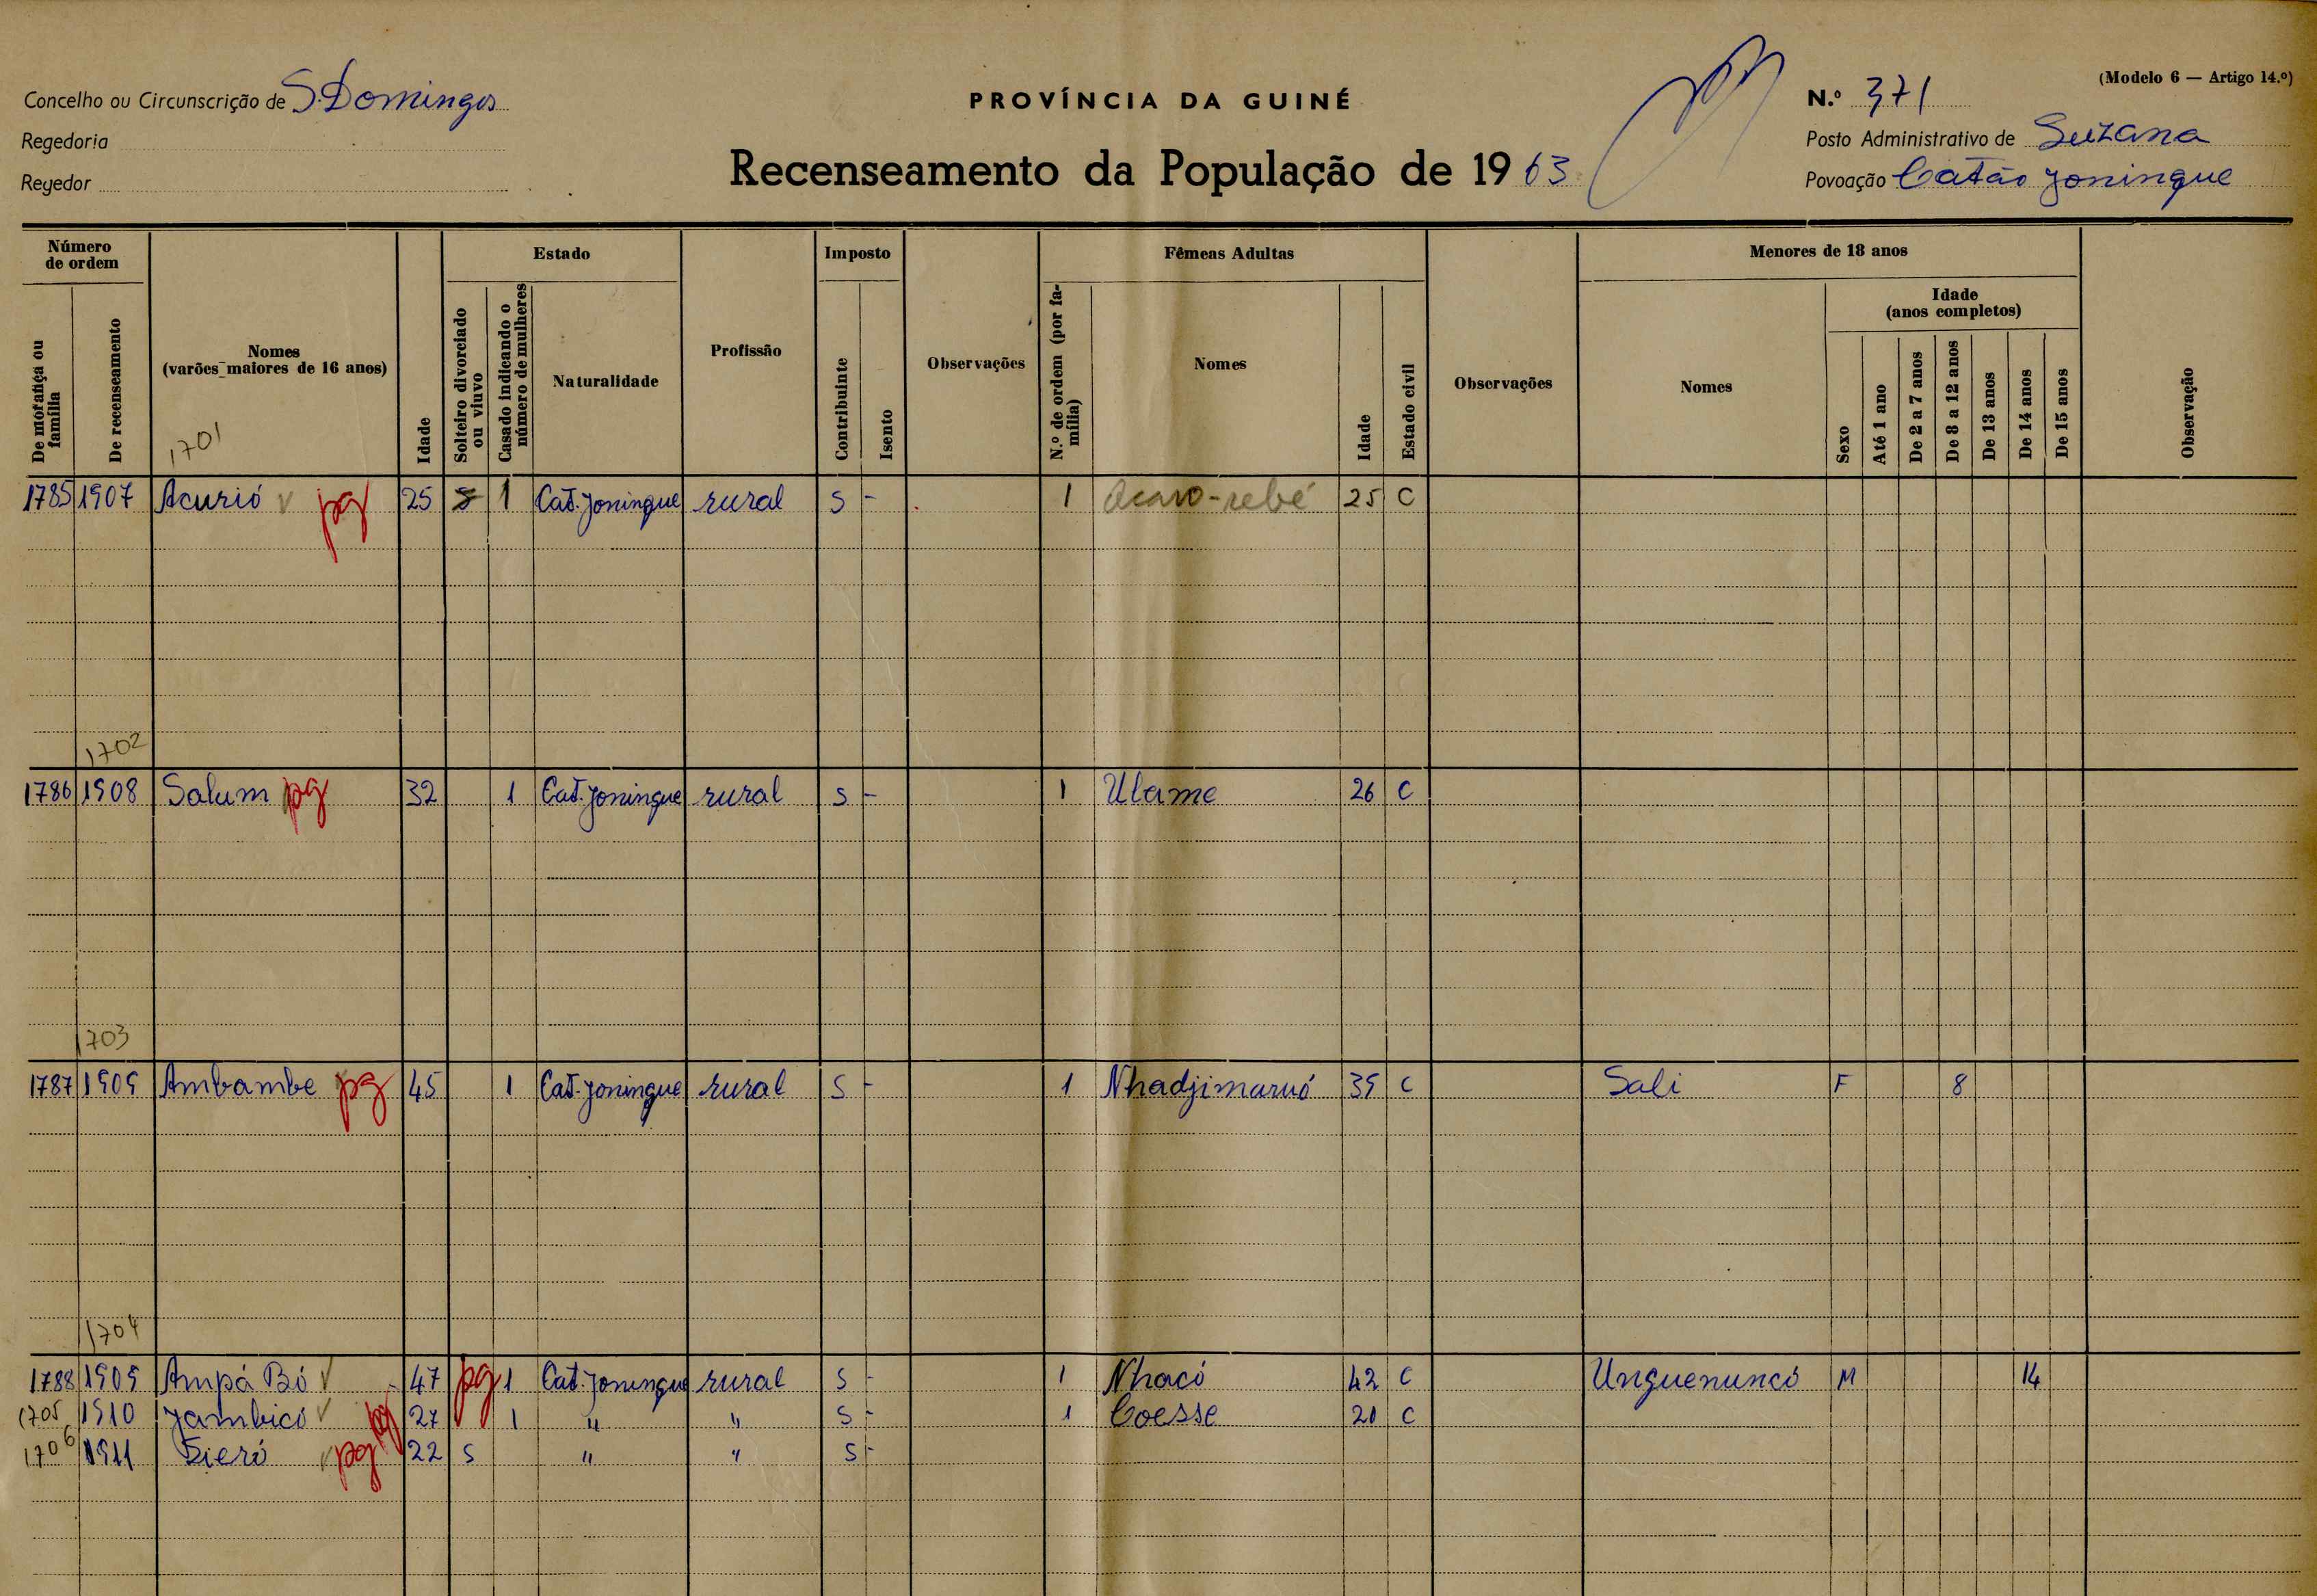 (Modelo 6 — Artigo 14.º)
Concelho ou Circunscrição de S. Domingos
PROVÍNCIA DA GUINÉ
N.º 371
Regedoria
Posto Administrativo de Suzana
Regedor
Recenseamento da População de 1963
Povoação Catão Joningue
Número de ordem
Estado
Imposto
Fêmeas Adultas
Menores de 18 anos
De morança ou família
De recenseamento
Nomes (varões maiores de 16 anos)
Idade
Solteiro divorciado ou viuvo
Casado indicando o número de mulheres
Naturalidade
Profissão
Contribuinte
Isento
Observações
N.º de ordem (por família)
Nomes
Idade
Estado civil
Observações
Nomes
Sexo
Idade (anos completos)
Até 1 ano
De 2 a 7 anos
De 8 a 12 anos
De 13 anos
De 14 anos
De 15 anos
Observação
1701
1785 1907 Acurió pg 25 s 1 Cat. Joningue rural S - 1 Acaro-rebé 25 C
1702
1786 1908 Salum pg 32 1 Cat. Joningue rural S - 1 Ulame 26 C
1703
1787 1909 Ambambe pg 45 1 Cat. Joningue rural S - 1 Nhadjimaruó 35 C Sali F 8
1704
1788 1909 Ampá Bó 47 pg 1 Cat. Joningue rural S - 1 Nhacó 42 C Unguenuncó M 14
1705 1910 Jambicó pg 27 1 " " S - 1 Coesse 20 C
1706 1911 Sieró pg 22 S " " S -